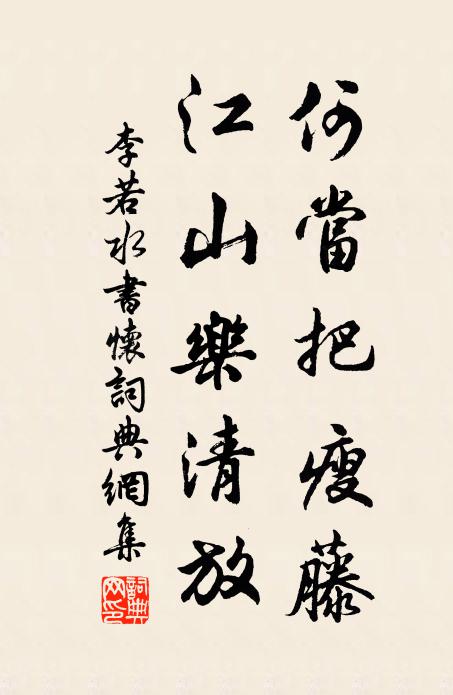 何當把瘦藤
江山樂清放
李若水書懷詞典網集
詞典网印